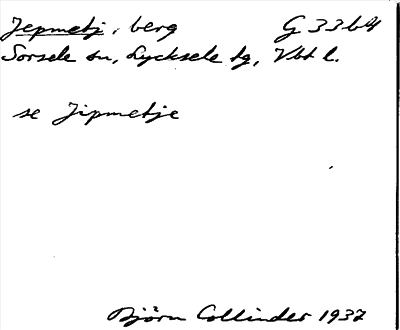 Jepmetj, berg G 33b4
Sorsele sn, Lycksele tg, Vbt l.
se Jipmetje
Björn Collinder 1937